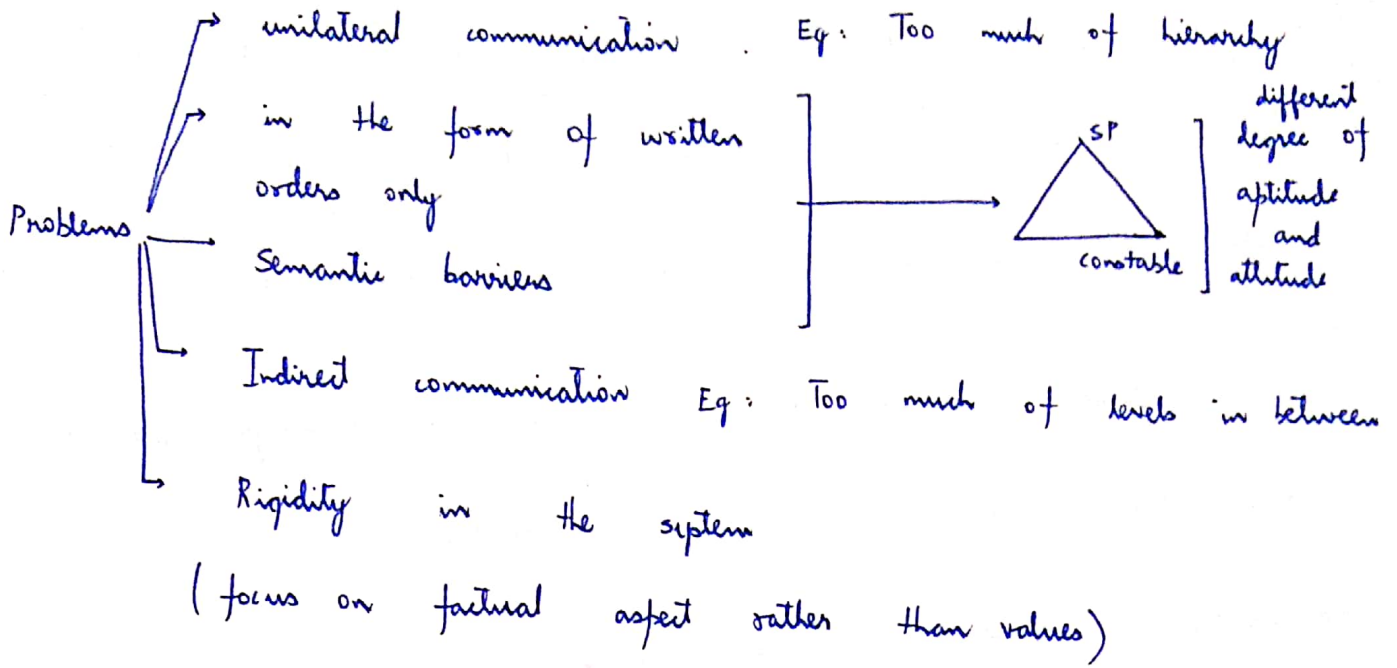 unilateral communication . Eg: Too much of hierarchy
in the form of written
orders only
Problems
Semantic barriers
SP
constable
different
degree of
aptitude
and
attitude
Indirect communication Eg: Too much of levels in between
Rigidity in the system
(focus on factual aspect rather than values)